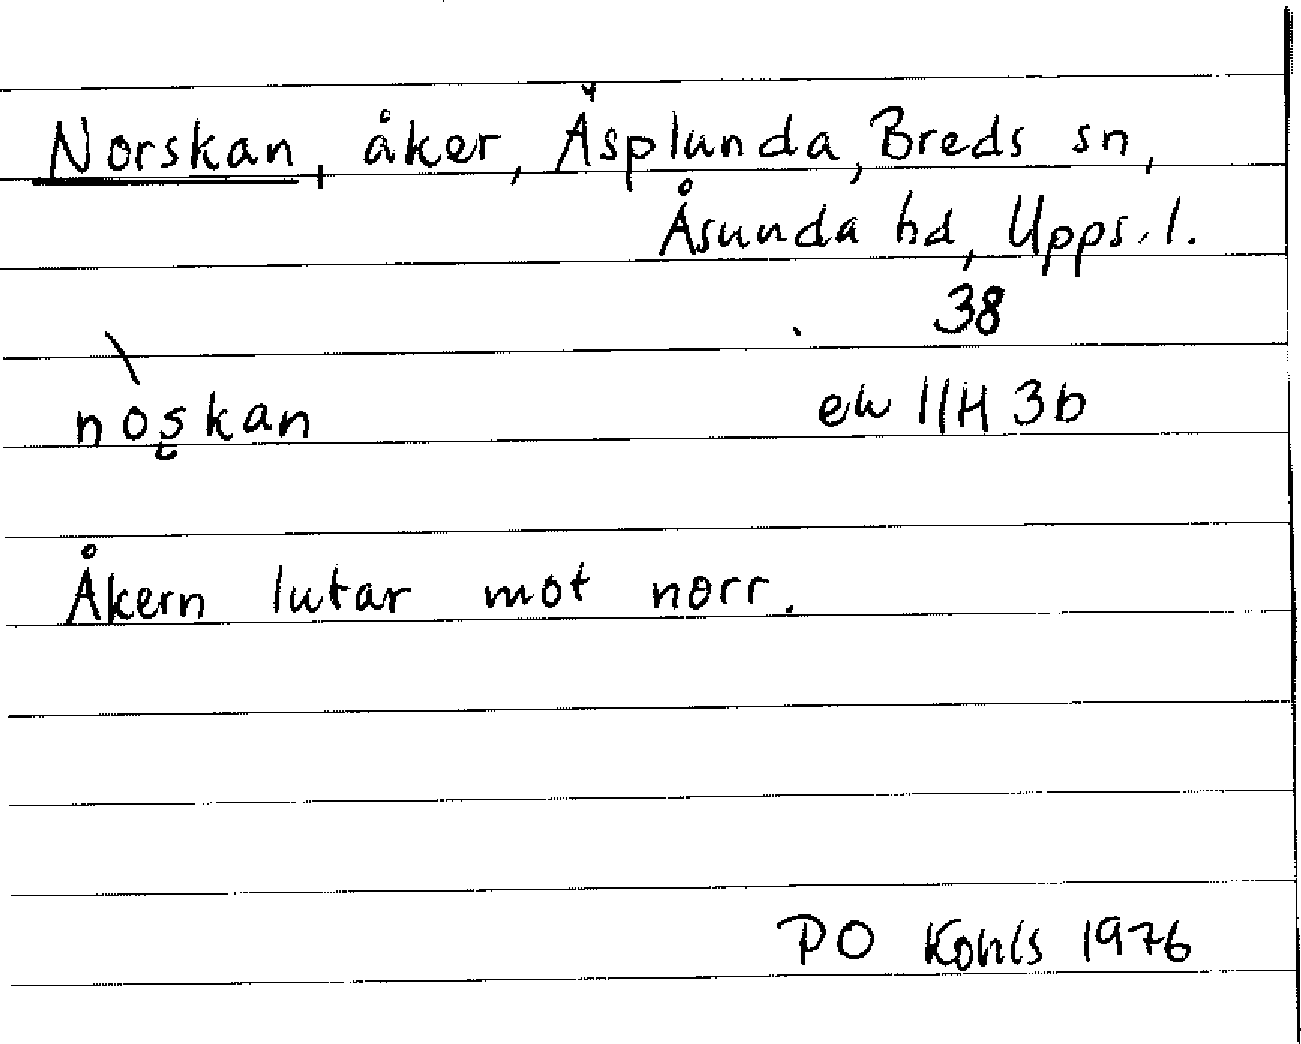 Norskan, åker, Äsplunda, Breds sn,
Åsunda hd, Upps. l.
38
nòʂkan
ek 11H 3b
Åkern lutar mot norr.
PO Kohls 1976